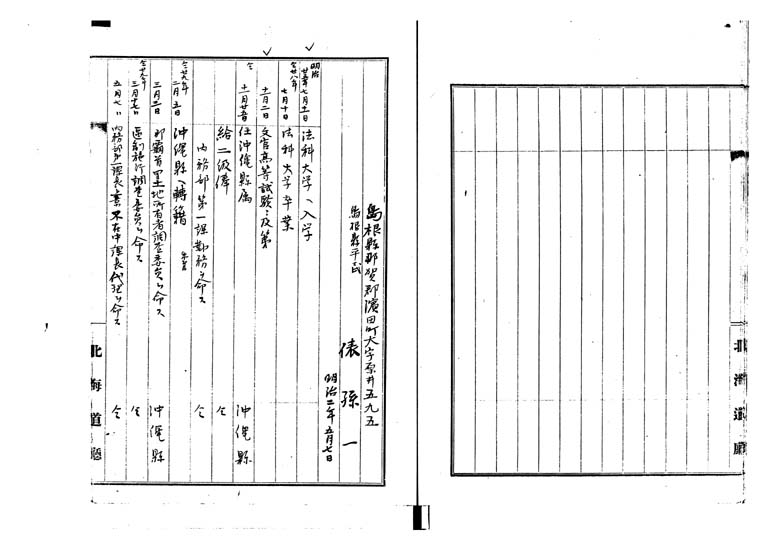 島根縣那賀郡濱田町大字原井五九五
島根縣平民
俵孫一
明治二年五月七日
明治廿五年七月十一日 法科大学ヘ入学
仝廿八年七月十日 法科大学卒業
十一月二日 文官高等試験ニ及第
仝 十一月廿五日 任沖縄縣属 沖縄縣
給二級俸 仝
内務部第一課勤務ヲ命ス 仝
仝廿九年二月五日 沖縄縣ヘ轉籍
三月二日 那覇首里土地所有者調査委員ヲ命ス 沖縄縣
仝廿九年三月十七日 區制施行調査委員ヲ命ス 仝
五月七日 内務部第一課長 不在中課長代理ヲ命ス 仝
北海道廳
北海道廳